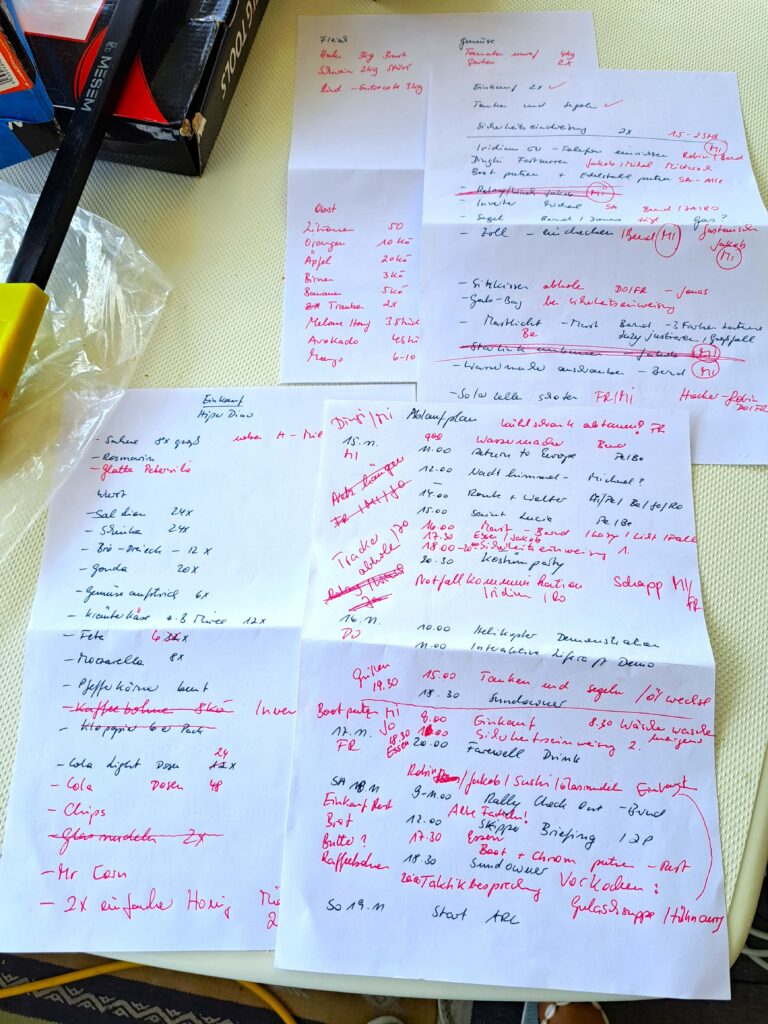 MESEM
IG TOOLS
Fleisch
Huhn 3kg Brust
Schwein 2kg
Rind - Entrecote 3kg
Obst
Zitronen 50
Orangen 10 Kg
Äpfel 20 Kg
Birnen 3 Kg
Bananen 5 Kg
Trauben 2x
Melone Honig 3 Stück
Avokado
Mango 6-10
Gemüse
Tomate 4kg
Gurken 2x
Einkauf 2x ✓
Tanken und segeln ✓
Sicherheitseinweisung 2x 1,5-2 Std
Iridium - Telefon einrichten Robin/Bernd MI
Dinghi Festmachen Jakob/Michel Mittwoch
Boot putzen + Edelstahl putzen SA - Alle
- Relay/Wind Jakob MI
- Inverter Michel SA Bernd/
- Segel Bernd/Jonas Gas?
- Zoll - einchecken/Bernd MI Jakob MI
- Sitzkissen abhole DO/FR - Jonas
- Grab-Bag bei Sicherheitseinweisung
- Mastlicht - Mast Bernd - 3 Farben Laterne
Be Lazy justieren/Großfall
- Starlink - Jakob MI
- Wassermacher anschauen - Bernd MI
- Solarzelle FR/MI Hocker - Robin DO/FR
Einkauf
Hiper Dino
- Sahne 8x groß neben H-Mil
- Rosmarin
- Glatte Petersilie
Wurst
- Salami 24x
- Schinke 24x
- Bio-Dreieck - 12x
- Gouda 20x
- Gemüse aufstrich 6x
- Kräuterkäse 12x
- Feta 6x
- Mozzarella 8x
- Pfefferkörner bunt
- Kaffeebohne 8Kg
- Klopapier 6er Pack
24
- Cola Light Dosen 12x
- Cola Dosen 48
- Chips
- Glasnudeln 2x
- Mr Corn
- 2x einfacher Honig
Dingi/MI Ablaufplan Kühlschrank abtauen? FR
15.11. Wassermacher Bernd
MI 11.00 Return to Europe Pe/Be
12.00 Nachthimmel - Michael?
FR/MI/JO 14.00 Route + Wetter Ai/Pe/Be/Jo/Ro
15.00 Saint Lucia Pe/Be
16.00 Mast - Bernd/Lazy/Licht/Fall
17.30 Essen/Jakob
Tracker/Jo abhole 18.00-20 Sicherheitseinweisung 1.
20.30 Kostümparty
Notfallkommunikation Schapp MI/FR
Iridium/Ro
16.11.
DO 10.00 Helikopter Demonstration
11.00 Interaktive Liferaft Demo
Grillen 19.30 15.00 Tanken und segeln/Ölwechsel
18.30 Sundowner
Boot putzen MI Jo 8.00 Einkauf 8.30 Wäsche waschen
17.11. Sicherheitseinweisung 2. morgens
FR 18.30 Essen 20.00 Farewell Drink
Robin/Jakob/Sushi/Glasnudel Einkauf
SA 18.11 9-11.00 Rally Check Out - Bernd
Einkauf Rest Alle
Brot 12.00 Skipper Briefing /2P
Butter? 17.30 Essen
Boot + Chrom putzen - Rest
Kaffeebohnen 18.30 Sundowner Vorkochen:
20.00 Taktikbesprechung Gulaschsuppe/Hühncurry
So 19.11 Start ARC